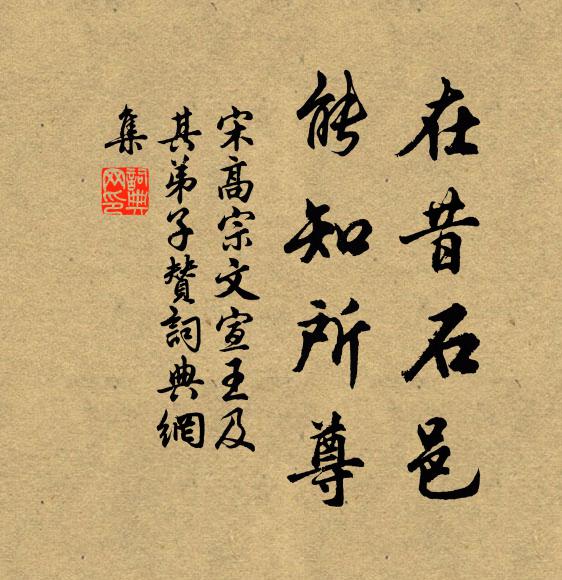 在昔石邑
能知所尊
宋高宗文宣王及
其弟子贊詞典網
集
詞典
网印